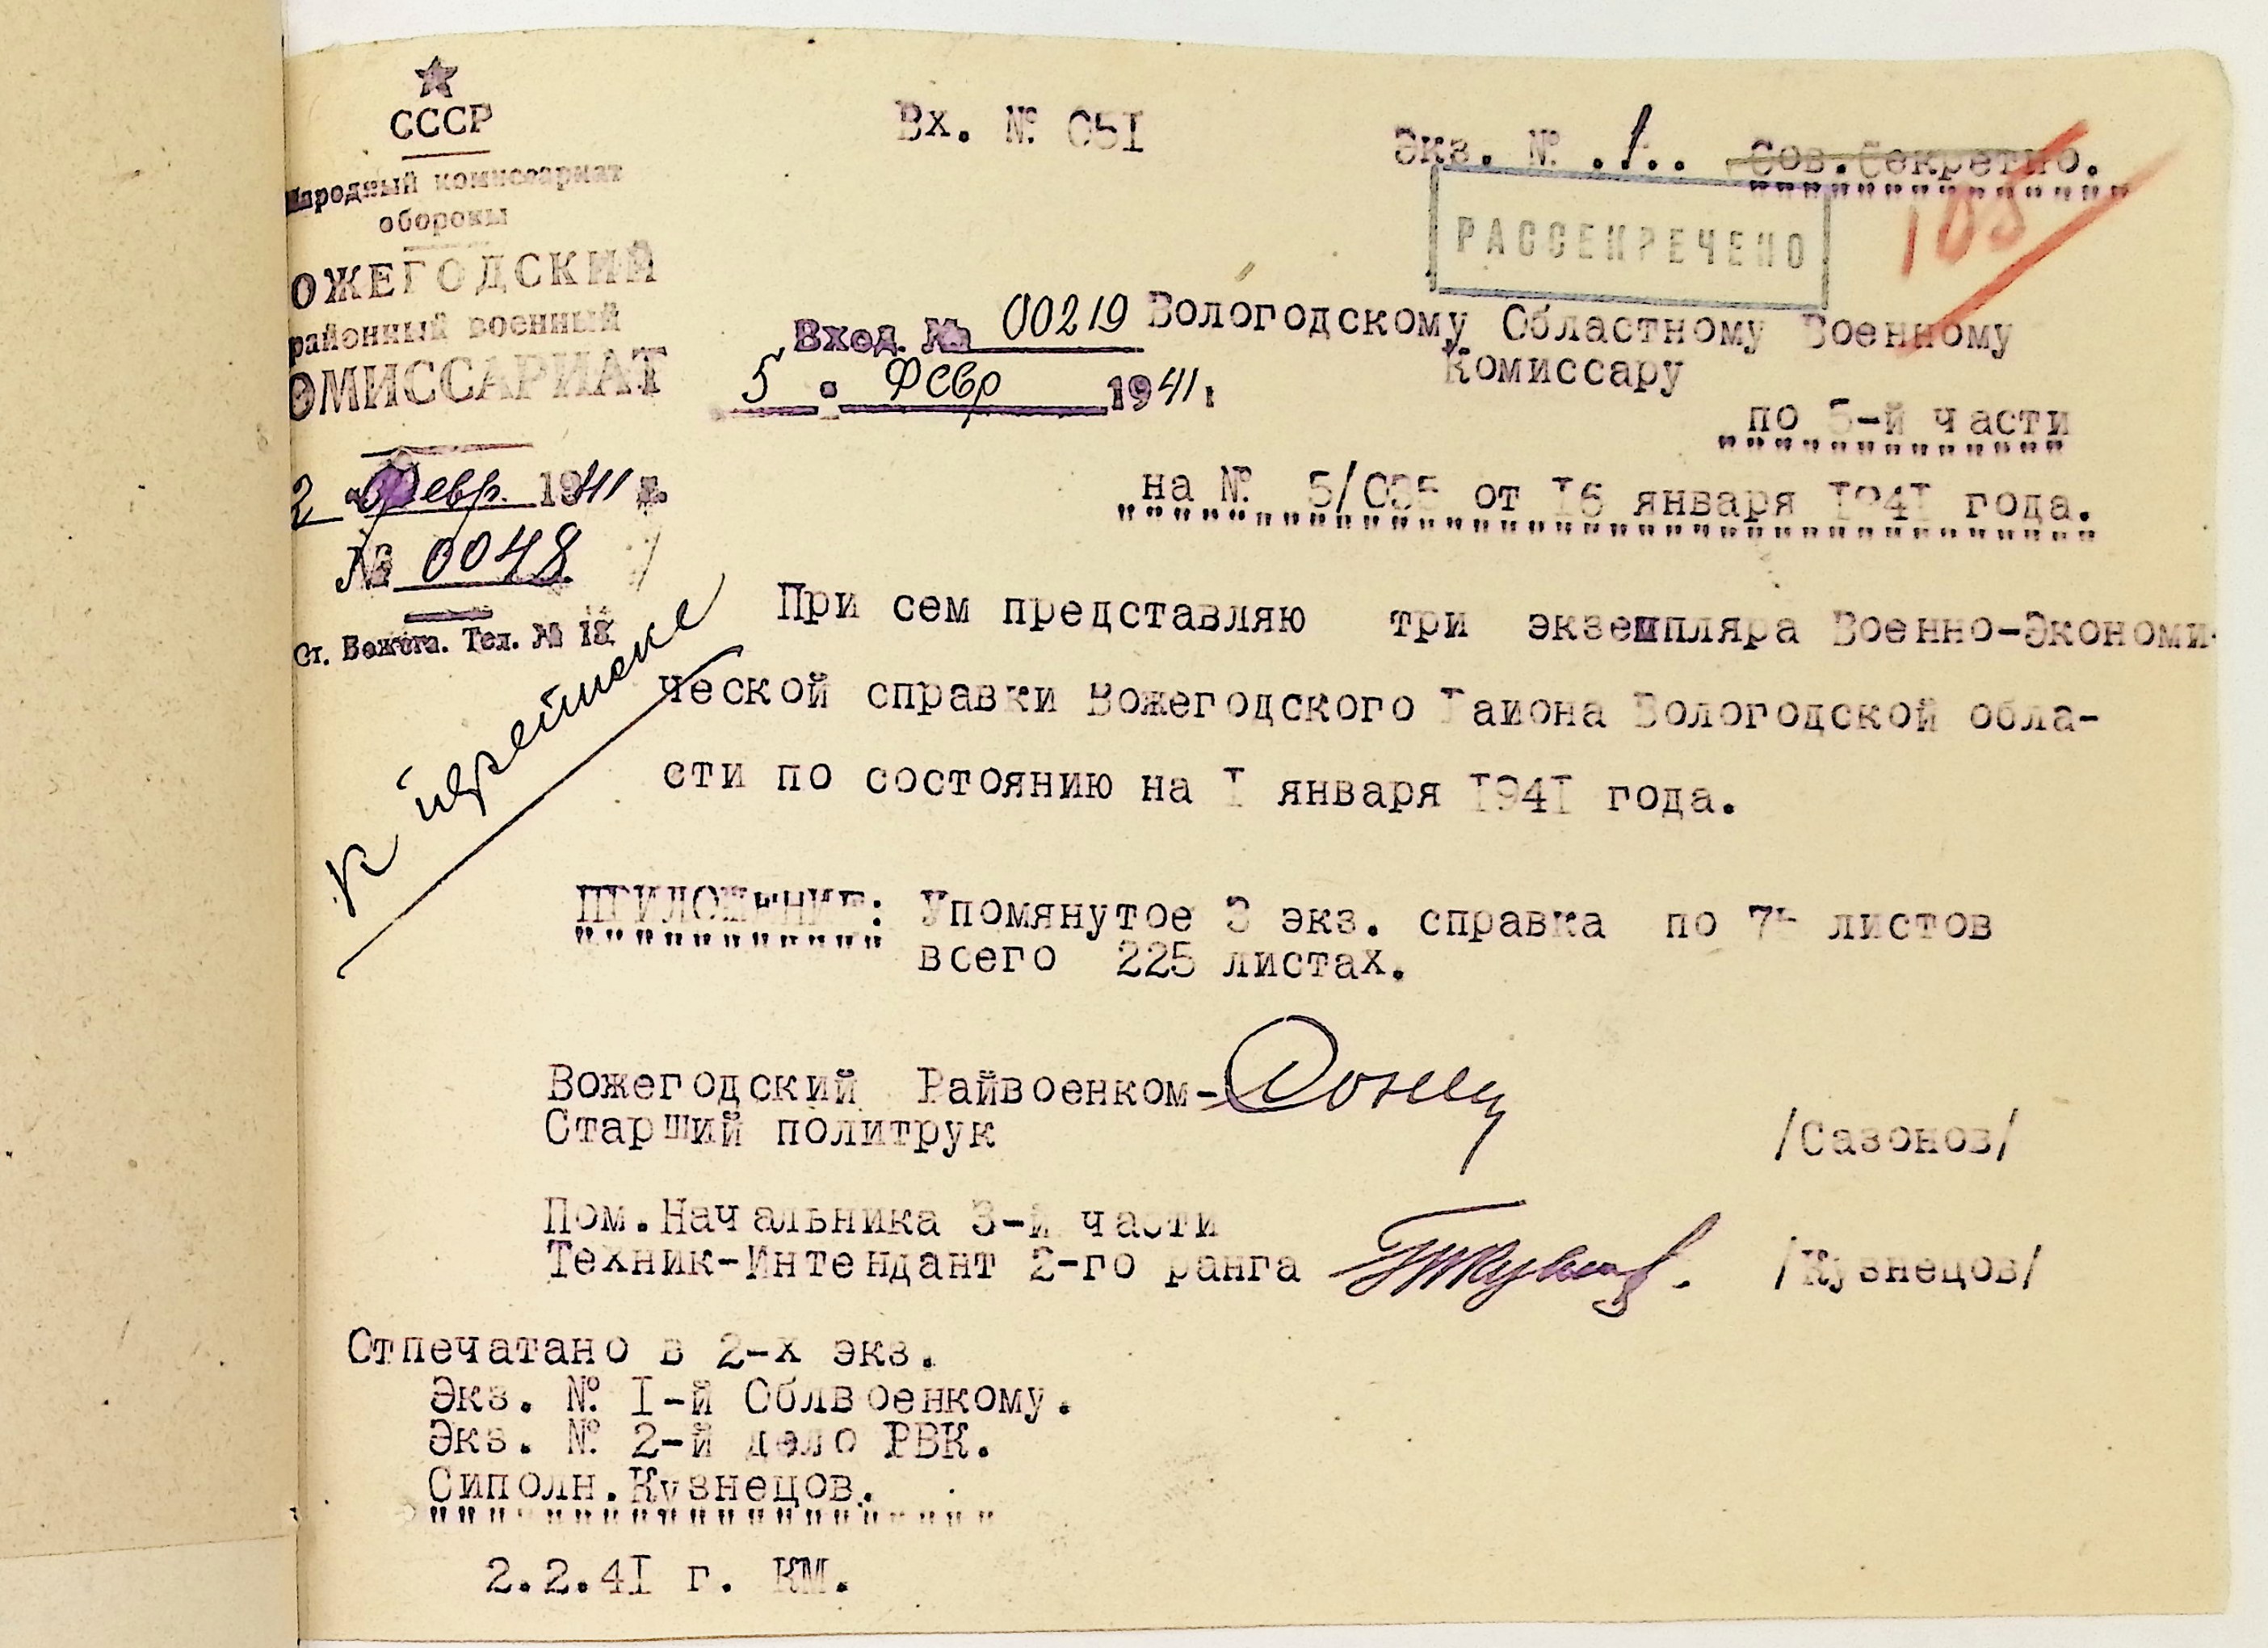 СССР
Народный комиссариат
обороны
ОЖЕГОДСКИЙ
районный военный
ОМИССАРИАТ
2 Февр. 1941 г.
№ 0048
Ст. Вожега. Тел. № 18
Вх. № 051
Экз. № .1.. Сов.Секретно.
РАССЕКРЕЧЕНО
Вход. № 00219
5 Февр 1941 г
Вологодскому Областному Военному
Комиссару
по 5-й части
на № 5/035 от I6 января I94I года.
К переписке
При сем представляю три экземпляра Военно-Экономи-
ческой справки Вожегодского Района Вологодской обла-
сти по состоянию на I января I94I года.
ПРИЛОЖЕНИЕ: Упомянутое 3 экз. справка по 75 листов
всего 225 листах.
Вожегодский Райвоенком-
Старший политрук /Сазонов/
Пом.Начальника 3-й части
Техник-Интендант 2-го ранга /Кузнецов/
Отпечатано в 2-х экз.
Экз. № I-й Облвоенкому.
Экз. № 2-й дело РВК.
Сиполн.Кузнецов.
2.2.4I г. КМ.